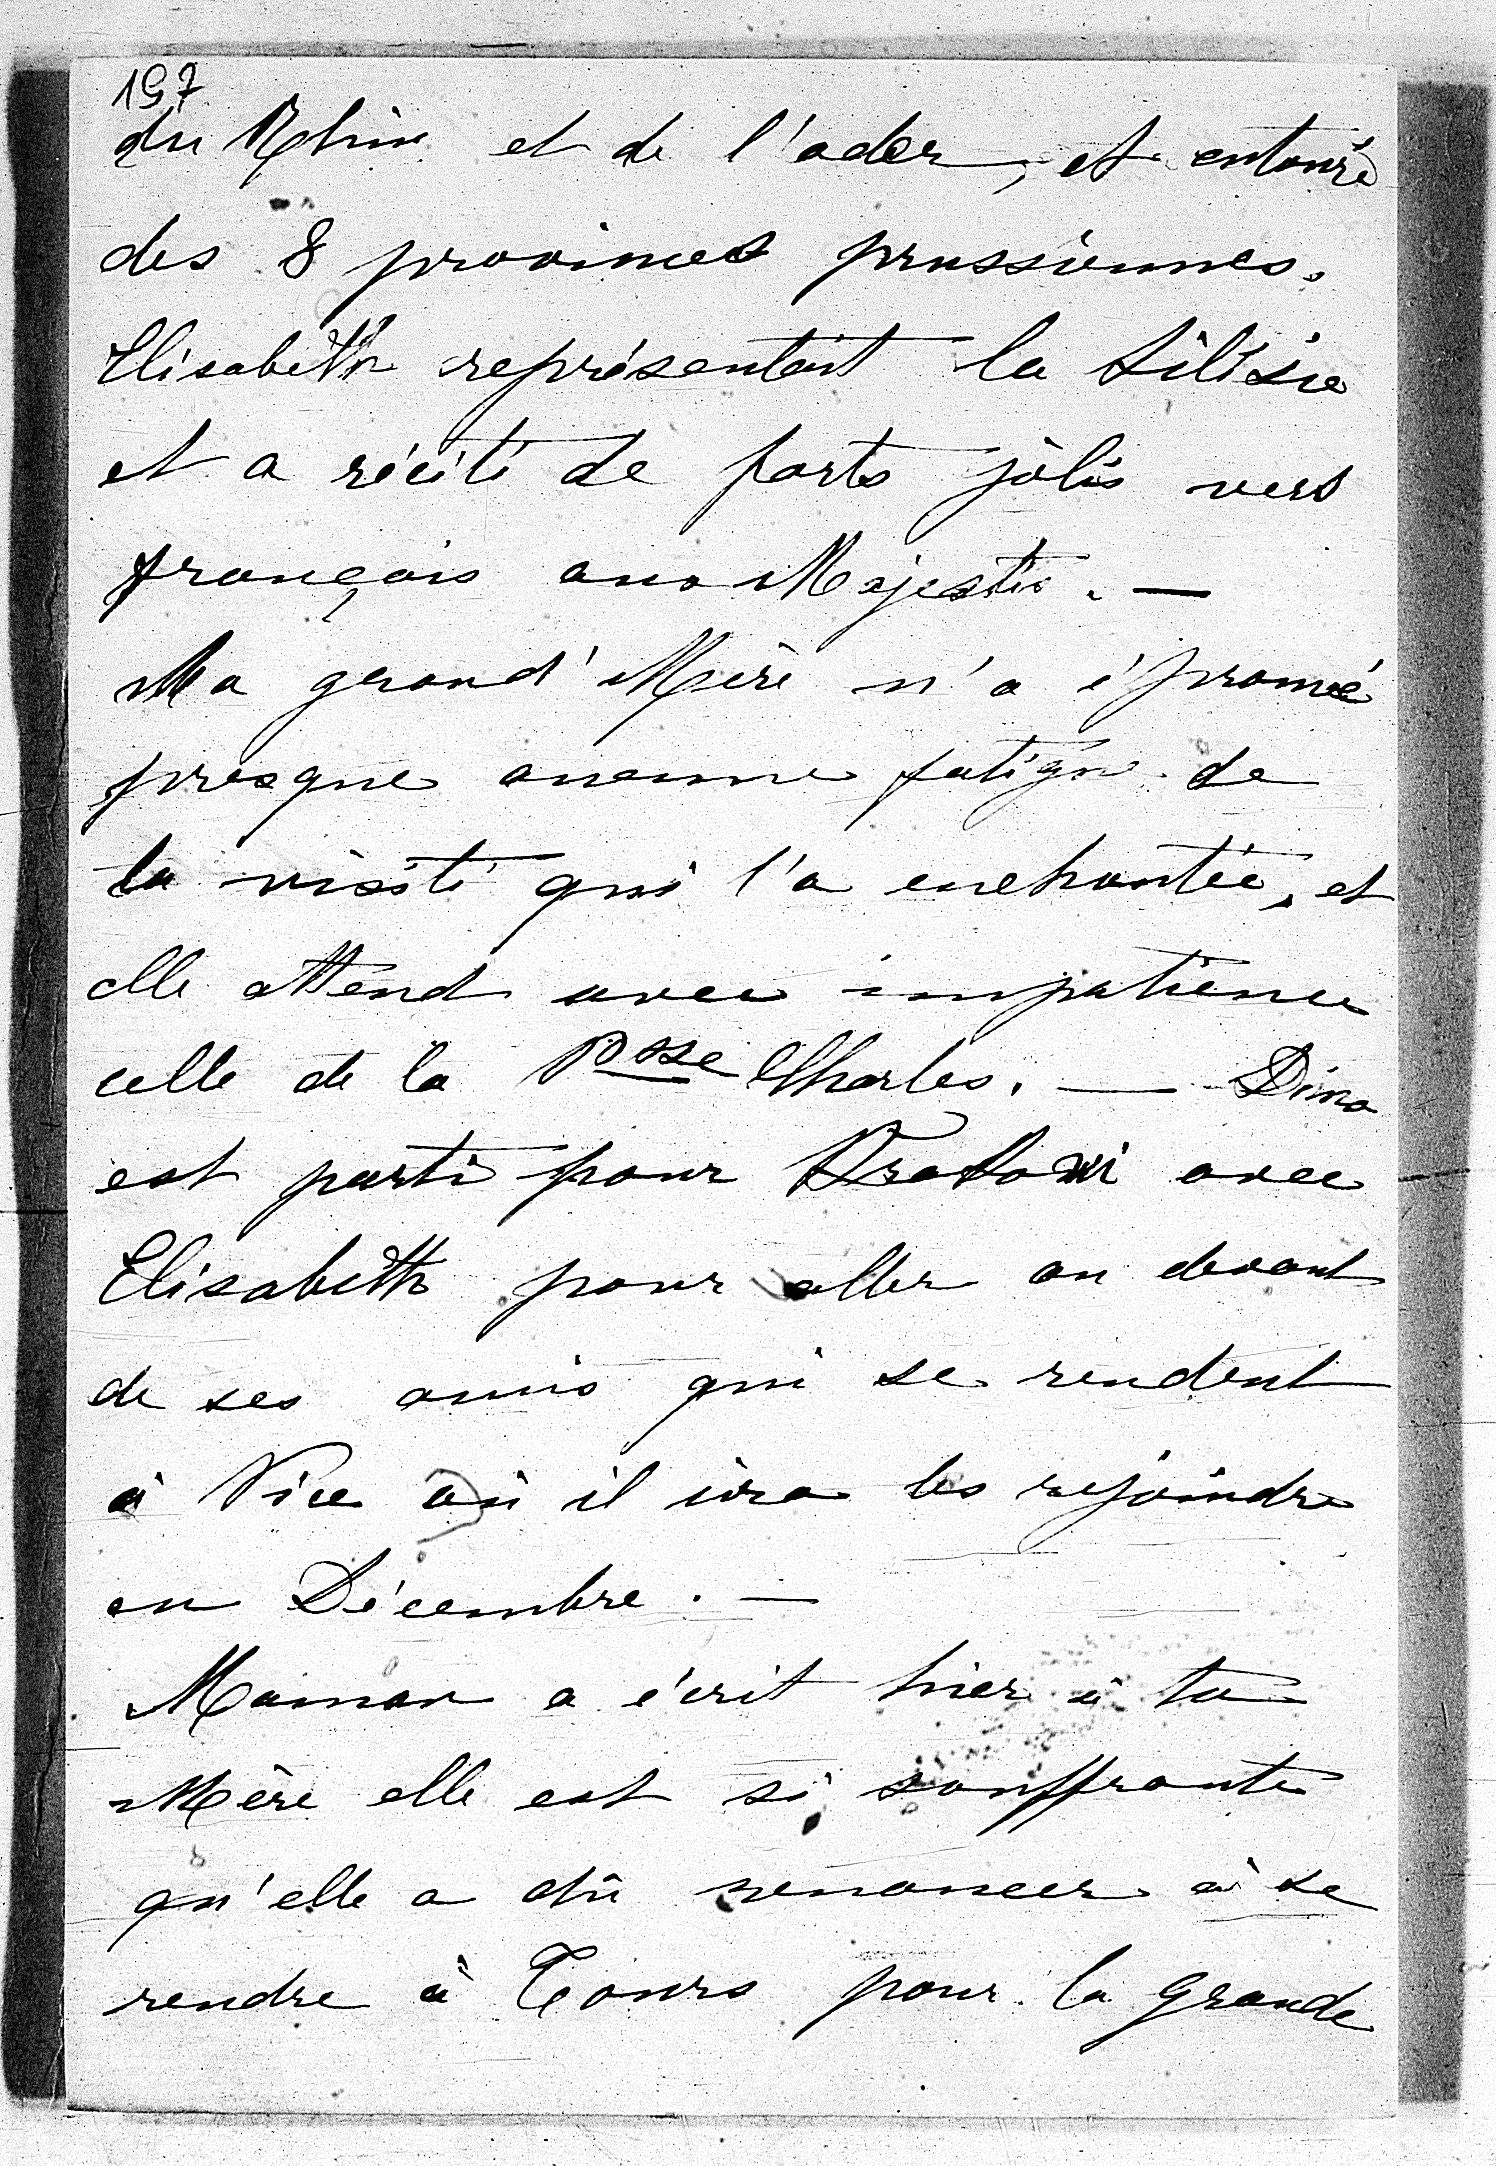 197
du Rhin et de l'oder, et entouré
des 8 provinces prussiennes.
Elisabeth représentait la Silésie
et a récité de forts jolis vers
français aux Majestés. —
Ma grand'Mère n'a éprouvé
presque aucune fatigue de
la visite qui l'a enchantée, et
elle attend avec impatience
celle de la Psse Charles. — Dino
est parti pour avec
Elisabeth pour aller au devant
de ses amis qui se rendent
à Nice où il ira les rejoindre
en Décembre. —
Maman a écrit hier à ta
Mère elle est si souffrante
qu'elle a dû renoncer à se
rendre à Tours pour la grande